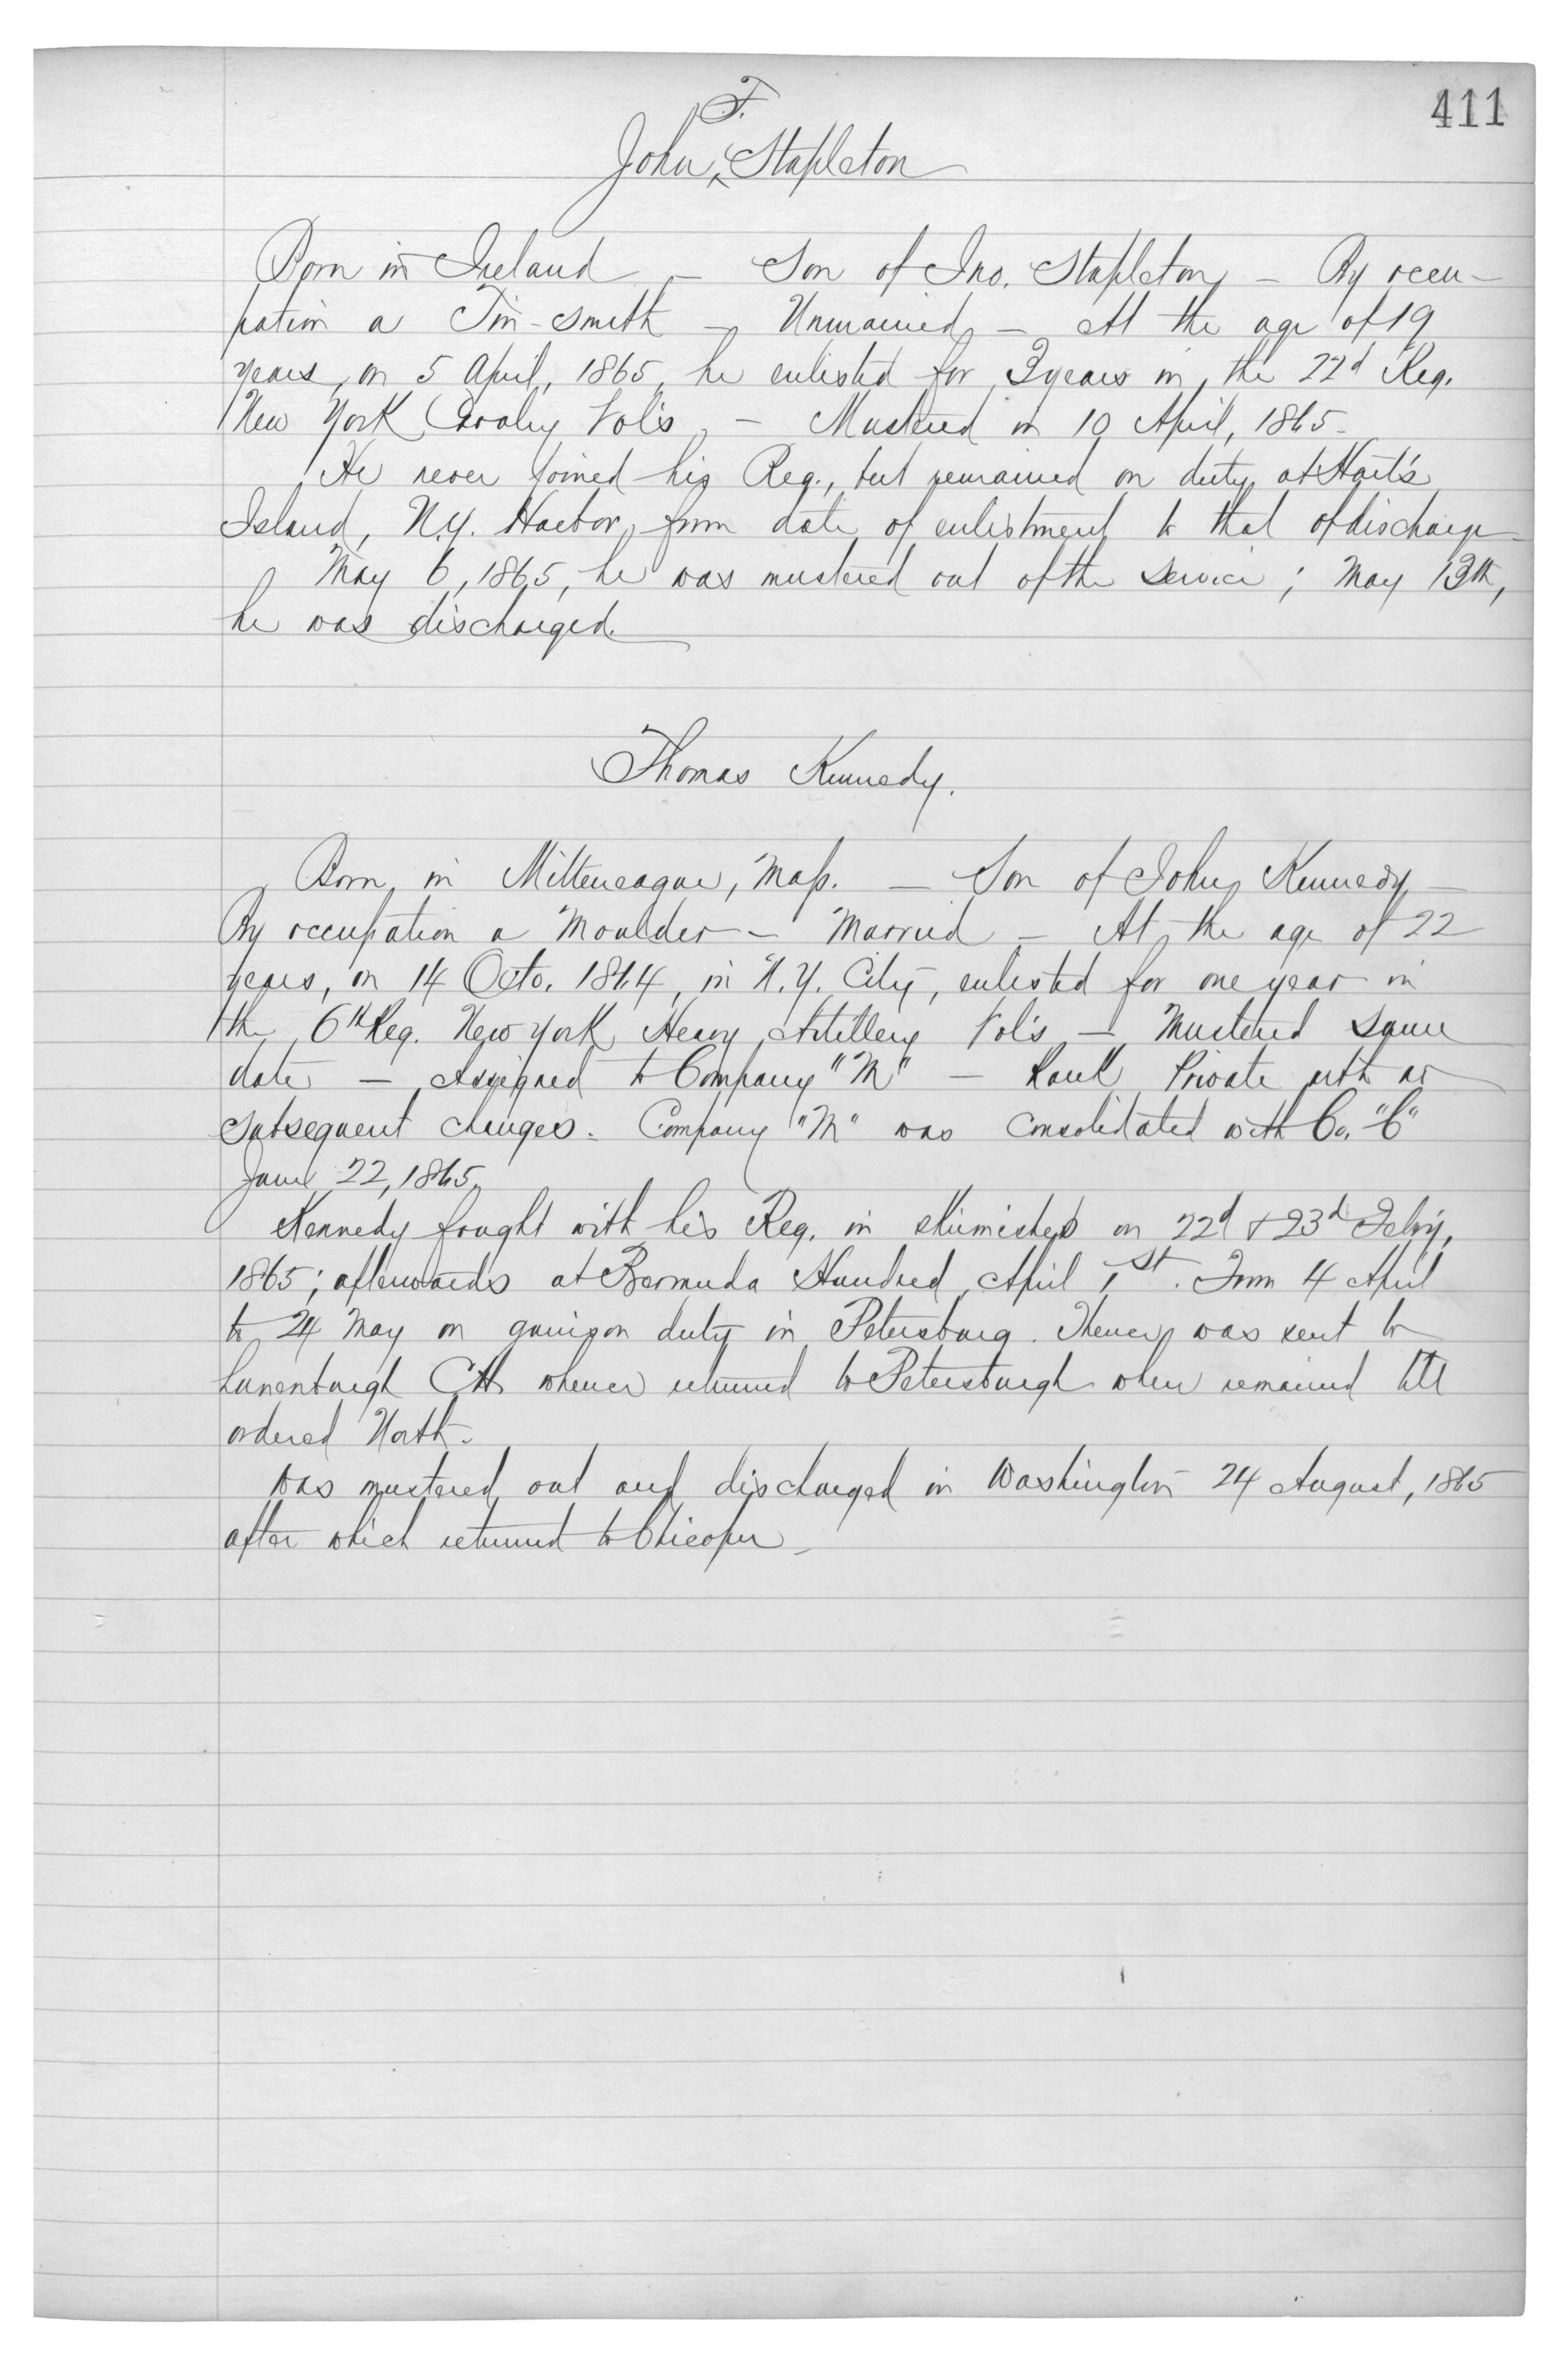 411
F.
John ‸ Stapleton
Born in Ireland — Son of Jno. Stapleton — By occu-
pation a Tin-smith — Unmarried — At the age of 19
years, on 5 April, 1865, he enlisted for 3 years in the 22d Reg.
New York Cavalry Vol's — Mustered in 10 April, 1865 —
He never joined his Reg., but remained on duty at Hart's
Island, N.Y. Harbor, from date of enlistment to that of discharge —
May 6, 1865, he was mustered out of the service; May 13th,
he was discharged.
Thomas Kennedy.
Born in Mitteneague, Mass. — Son of John Kennedy —
By occupation a Moulder — Married — At the age of 22
years, on 14 Octo. 1864, in N.Y. City, enlisted for one year in
the 6th Reg. New York Heavy Artillery Vol's — Mustered same
date — Assigned to Company "M" — Rank Private with no
subsequent changes. Company "M" was consolidated with Co. "C"
June 22, 1865.
Kennedy fought with his Reg. in skirmishes on 22d & 23d Feb'y,
1865; afterwards at Bermuda Hundred, April 1st. From 4 April
to 24 May on garrison duty in Petersburg. Thence was sent to
Lunenburgh CH. whence returned to Petersburgh where remained till
ordered North.
Was mustered out and discharged in Washington 24 August, 1865
after which returned to Chicopee —